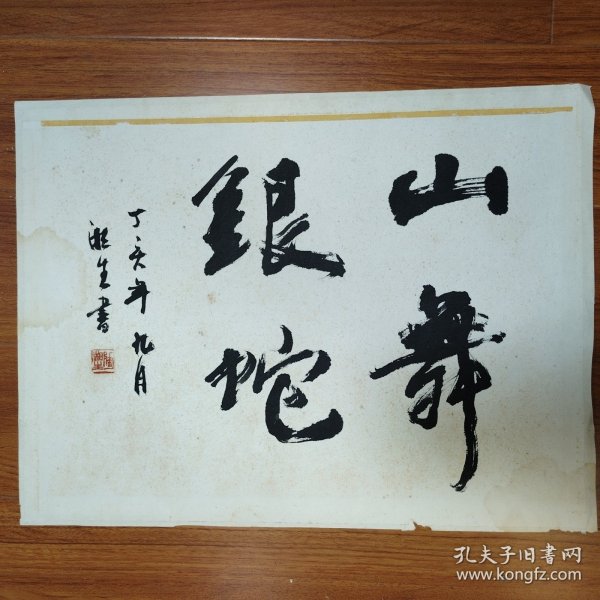 山舞
銀蛇
丁亥年九月
生書
孔夫子旧書网
www.kongfz.com